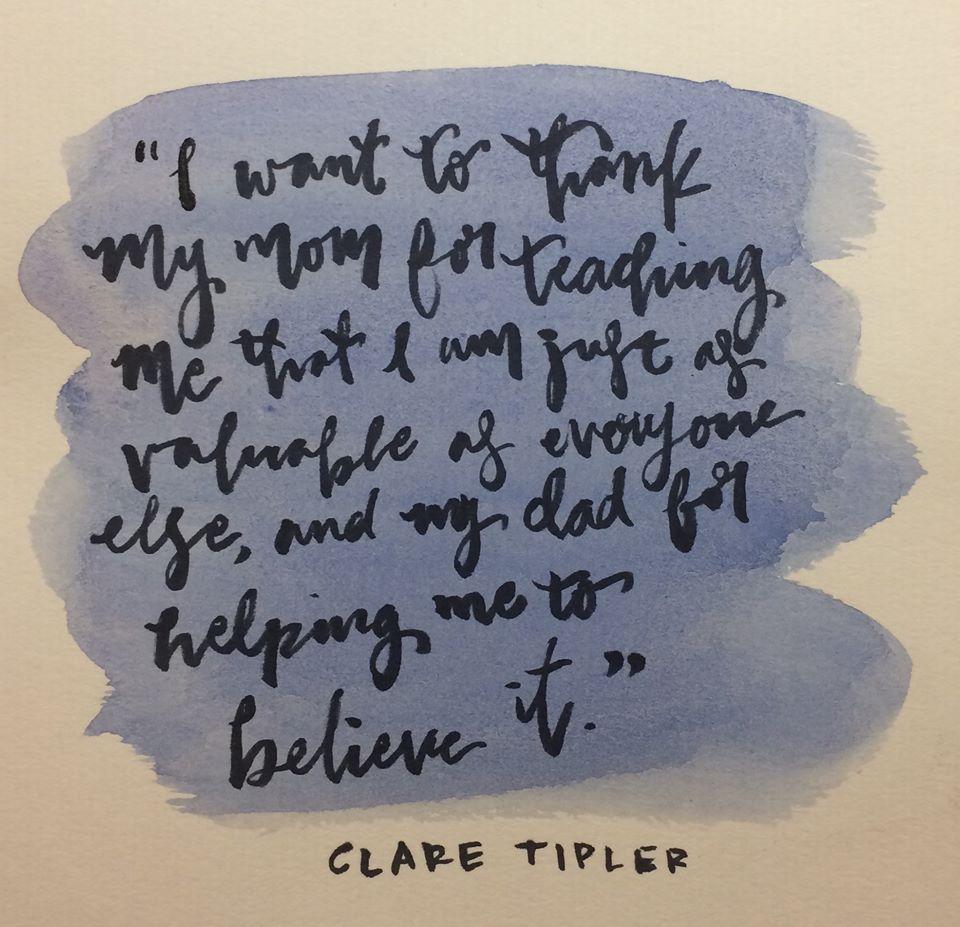 "I want to thank
my mom for teaching
me that I am just as
valuable as everyone
else, and my dad for
helping me to
believe it."
CLARE TIPLER